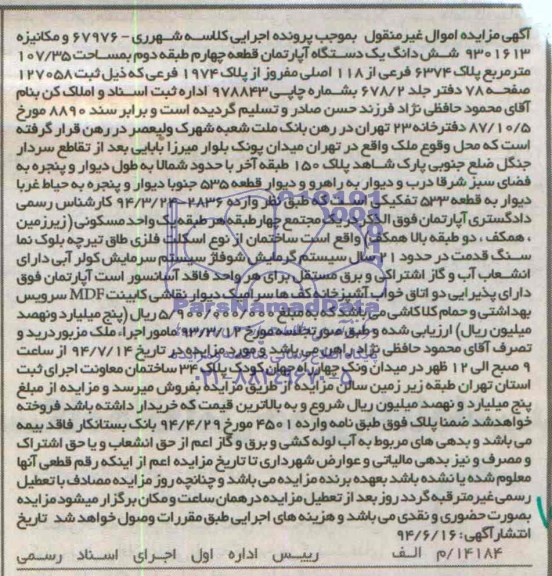 آگهی مزایده اموال غیرمنقول بموجب پرونده اجرایی کلاسه شهرری - ۶۷۹۷۶ و مکانیزه
۹۳۰۱۶۱۳ شش دانگ یک دستگاه آپارتمان قطعه چهارم طبقه دوم بمساحت ۱۰۷/۳۵
مترمربع پلاک ۶۳۷۴ فرعی از ۱۱۸ اصلی مفروز از پلاک ۱۹۷۴ فرعی که ذیل ثبت ۱۲۷۰۵۸
صفحه ۷۸ دفتر جلد ۶۷۸/۲ بشماره چاپی ۹۷۸۸۴۳ اداره ثبت اسناد و املاک کن بنام
آقای محمود حافظی نژاد فرزند حسن صادر و تسلیم گردیده است و برابر سند ۸۸۹۰ مورخ
۸۷/۱۰/۵ دفترخانه ۲۳ تهران در رهن بانک ملت شعبه شهرک ولیعصر در رهن قرار گرفته
است که محل وقوع ملک واقع در تهران میدان پونک بلوار میرزا بابایی بعد از تقاطع سردار
جنگل ضلع جنوبی پارک شاهد پلاک ۱۵۰ طبقه آخر با حدود شمالا به طول دیوار و پنجره به
فضای سبز شرقا درب و دیوار به راهرو و دیوار قطعه ۵۳۵ جنوبا دیوار و پنجره به حیاط غربا
دیوار به قطعه ۵۳۳ تفکیکی است که طبق نظر وارده ۲۸۳۶- ۹۴/۳/۲۴ کارشناس رسمی
دادگستری آپارتمان فوق الذکر در یک مجتمع چهار طبقه هر طبقه یک واحد مسکونی (زیرزمین
، همکف ، دو طبقه بالا همکف) واقع است ساختمان از نوع اسکلت فلزی طاق تیرچه بلوک نما
سنگ قدمت در حدود ۲۱ سال سیستم گرمایش شوفاژ سیستم سرمایش کولر آبی دارای
انشعاب آب و گاز اشتراکی و برق مستقل برای هر واحد فاقد آسانسور است آپارتمان فوق
دارای پذیرایی دو اتاق خواب آشپزخانه کف ها سرامیک دیوار نقاشی کابینت MDF سرویس
بهداشتی و حمام کلا کاشی می باشد که به مبلغ ۵/۹۰۰/۰۰۰/۰۰۰ ریال (پنج میلیارد و نهصد
میلیون ریال) ارزیابی شده و طبق صورتجلسه مورخ ۹۳/۳/۱۲ مامور اجراء ملک مزبور در ید و
تصرف آقای محمود حافظی نژاد راهن می باشد و مورد مزایده در تاریخ ۹۴/۷/۱۴ از ساعت
۹ صبح الی ۱۲ ظهر در میدان ونک چهارراه جهان کودک پلاک ۳۴ ساختمان معاونت اجرای ثبت
استان تهران طبقه زیر زمین سالن مزایده از طریق مزایده بفروش میرسد و مزایده از مبلغ
پنج میلیارد و نهصد میلیون ریال شروع و به بالاترین قیمت که خریدار داشته باشد فروخته
خواهد شد ضمنا پلاک فوق طبق نامه وارده ۴۵۰۱ مورخ ۹۴/۴/۲۹ بانک بستانکار فاقد بیمه
می باشد و بدهی های مربوط به آب لوله کشی و برق و گاز اعم از حق انشعاب و یا حق اشتراک
و مصرف و نیز بدهی مالیاتی و عوارض شهرداری تا تاریخ مزایده اعم از اینکه رقم قطعی آنها
معلوم شده یا نشده باشد بعهده برنده مزایده می باشد و چنانچه روز مزایده مصادف با تعطیل
رسمی غیر مترقبه گردد روز بعد از تعطیل مزایده در همان ساعت و مکان برگزار میشود مزایده
بصورت حضوری و نقدی می باشد و هزینه های اجرایی طبق مقررات وصول خواهد شد تاریخ
انتشار آگهی: ۹۴/۶/۱۶
۱۴۱۸۴/م الف رییس اداره اول اجرای اسناد رسمی
ParsNamadData